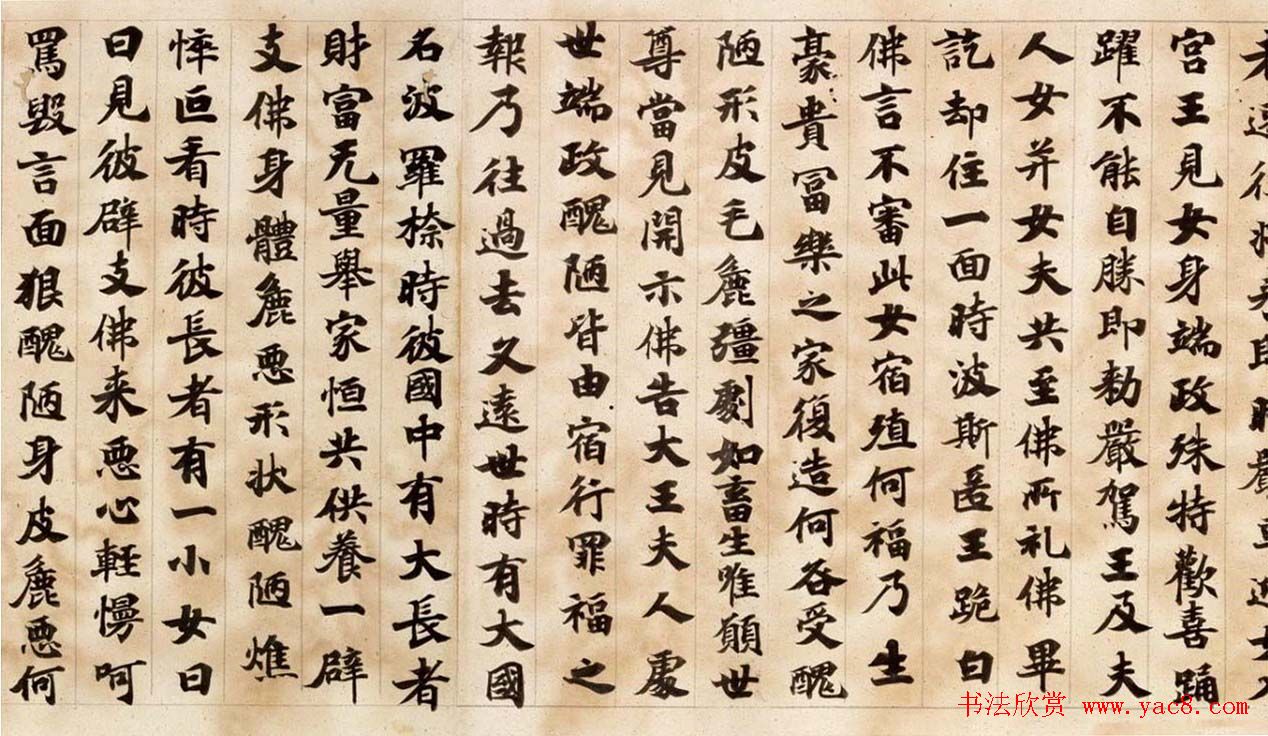 者還往將来即時嚴車迎女入
宮王見女身端政殊特歡喜踊
躍不能自勝即勑嚴駕王及夫
人女并女夫共至佛所礼佛畢
訖却住一面時波斯匿王跪白
佛言不審此女宿殖何福乃生
豪貴富樂之家復造何咎受醜
陋形皮毛麁彊劇如畜生唯願世
尊當見開示佛告大王夫人處
世端政醜陋皆由宿行罪福之
報乃往過去久遠世時有大國
名波羅柰時彼國中有大長者
財富无量舉家恒共供養一辟
支佛身體麁惡形狀醜陋燋
悴叵看時彼長者有一小女日
日見彼辟支佛来惡心輕慢呵
罵毀言面狠醜陋身皮麁惡何
书法欣赏 www.yac8.com